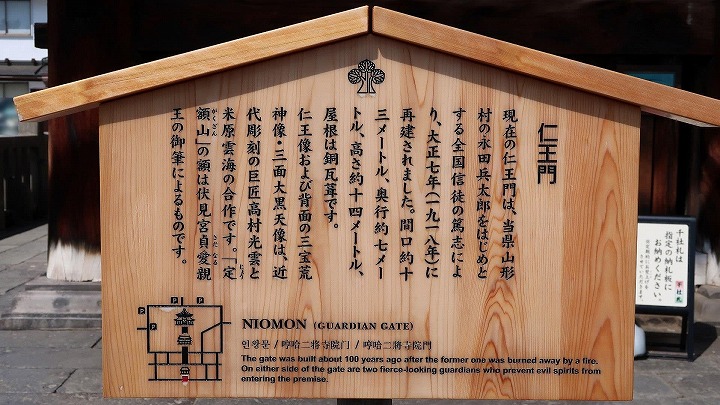 仁王門
現在の仁王門は、当県山形
村の永田兵太郎をはじめと
する全国信徒の篤志によ
り、大正七年（一九一八年）に
再建されました。間口約十
三メートル、奥行約七メー
トル、高さ約十四メートル、
屋根は銅瓦葺です。
仁王像および背面の三宝荒
神像・三面大黒天像は、近
代彫刻の巨匠高村光雲と
米原雲海の合作です。「定
額山」の額は伏見宮貞愛親
王の御筆によるものです。
じょう
がくざん
さだなる
NIOMON (GUARDIAN GATE)
인왕문 / 哼哈二将寺院门 / 哼哈二將寺院門
The gate was built about 100 years ago after the former one was burned away by a fire.
On either side of the gate are two fierce-looking guardians who prevent evil spirits from
entering the premise.
P P
P
P
千社札は
指定の納札板に
お納めください。